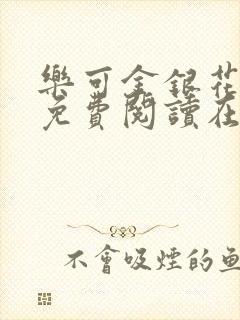 樂可金銀花
免費閱讀在
不會吸煙的魚